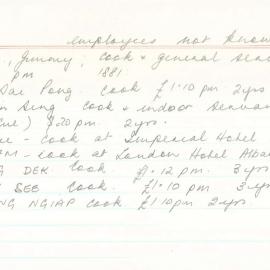 employees not know
, Jimmy, cook & general serv
pm 1881.
Sai Pong. cook £1.10 pm 2yrs
Sing cook & indoor servan
£20 pm. 2yrs.
- cook at Imperial Hotel
- cook at London Hotel Alba
DEK. Cook. £.12pm. 3yrs
SEE Cook. £1.10 pm 3yrs
NG NGIAP cook £1.10pm 2yrs.